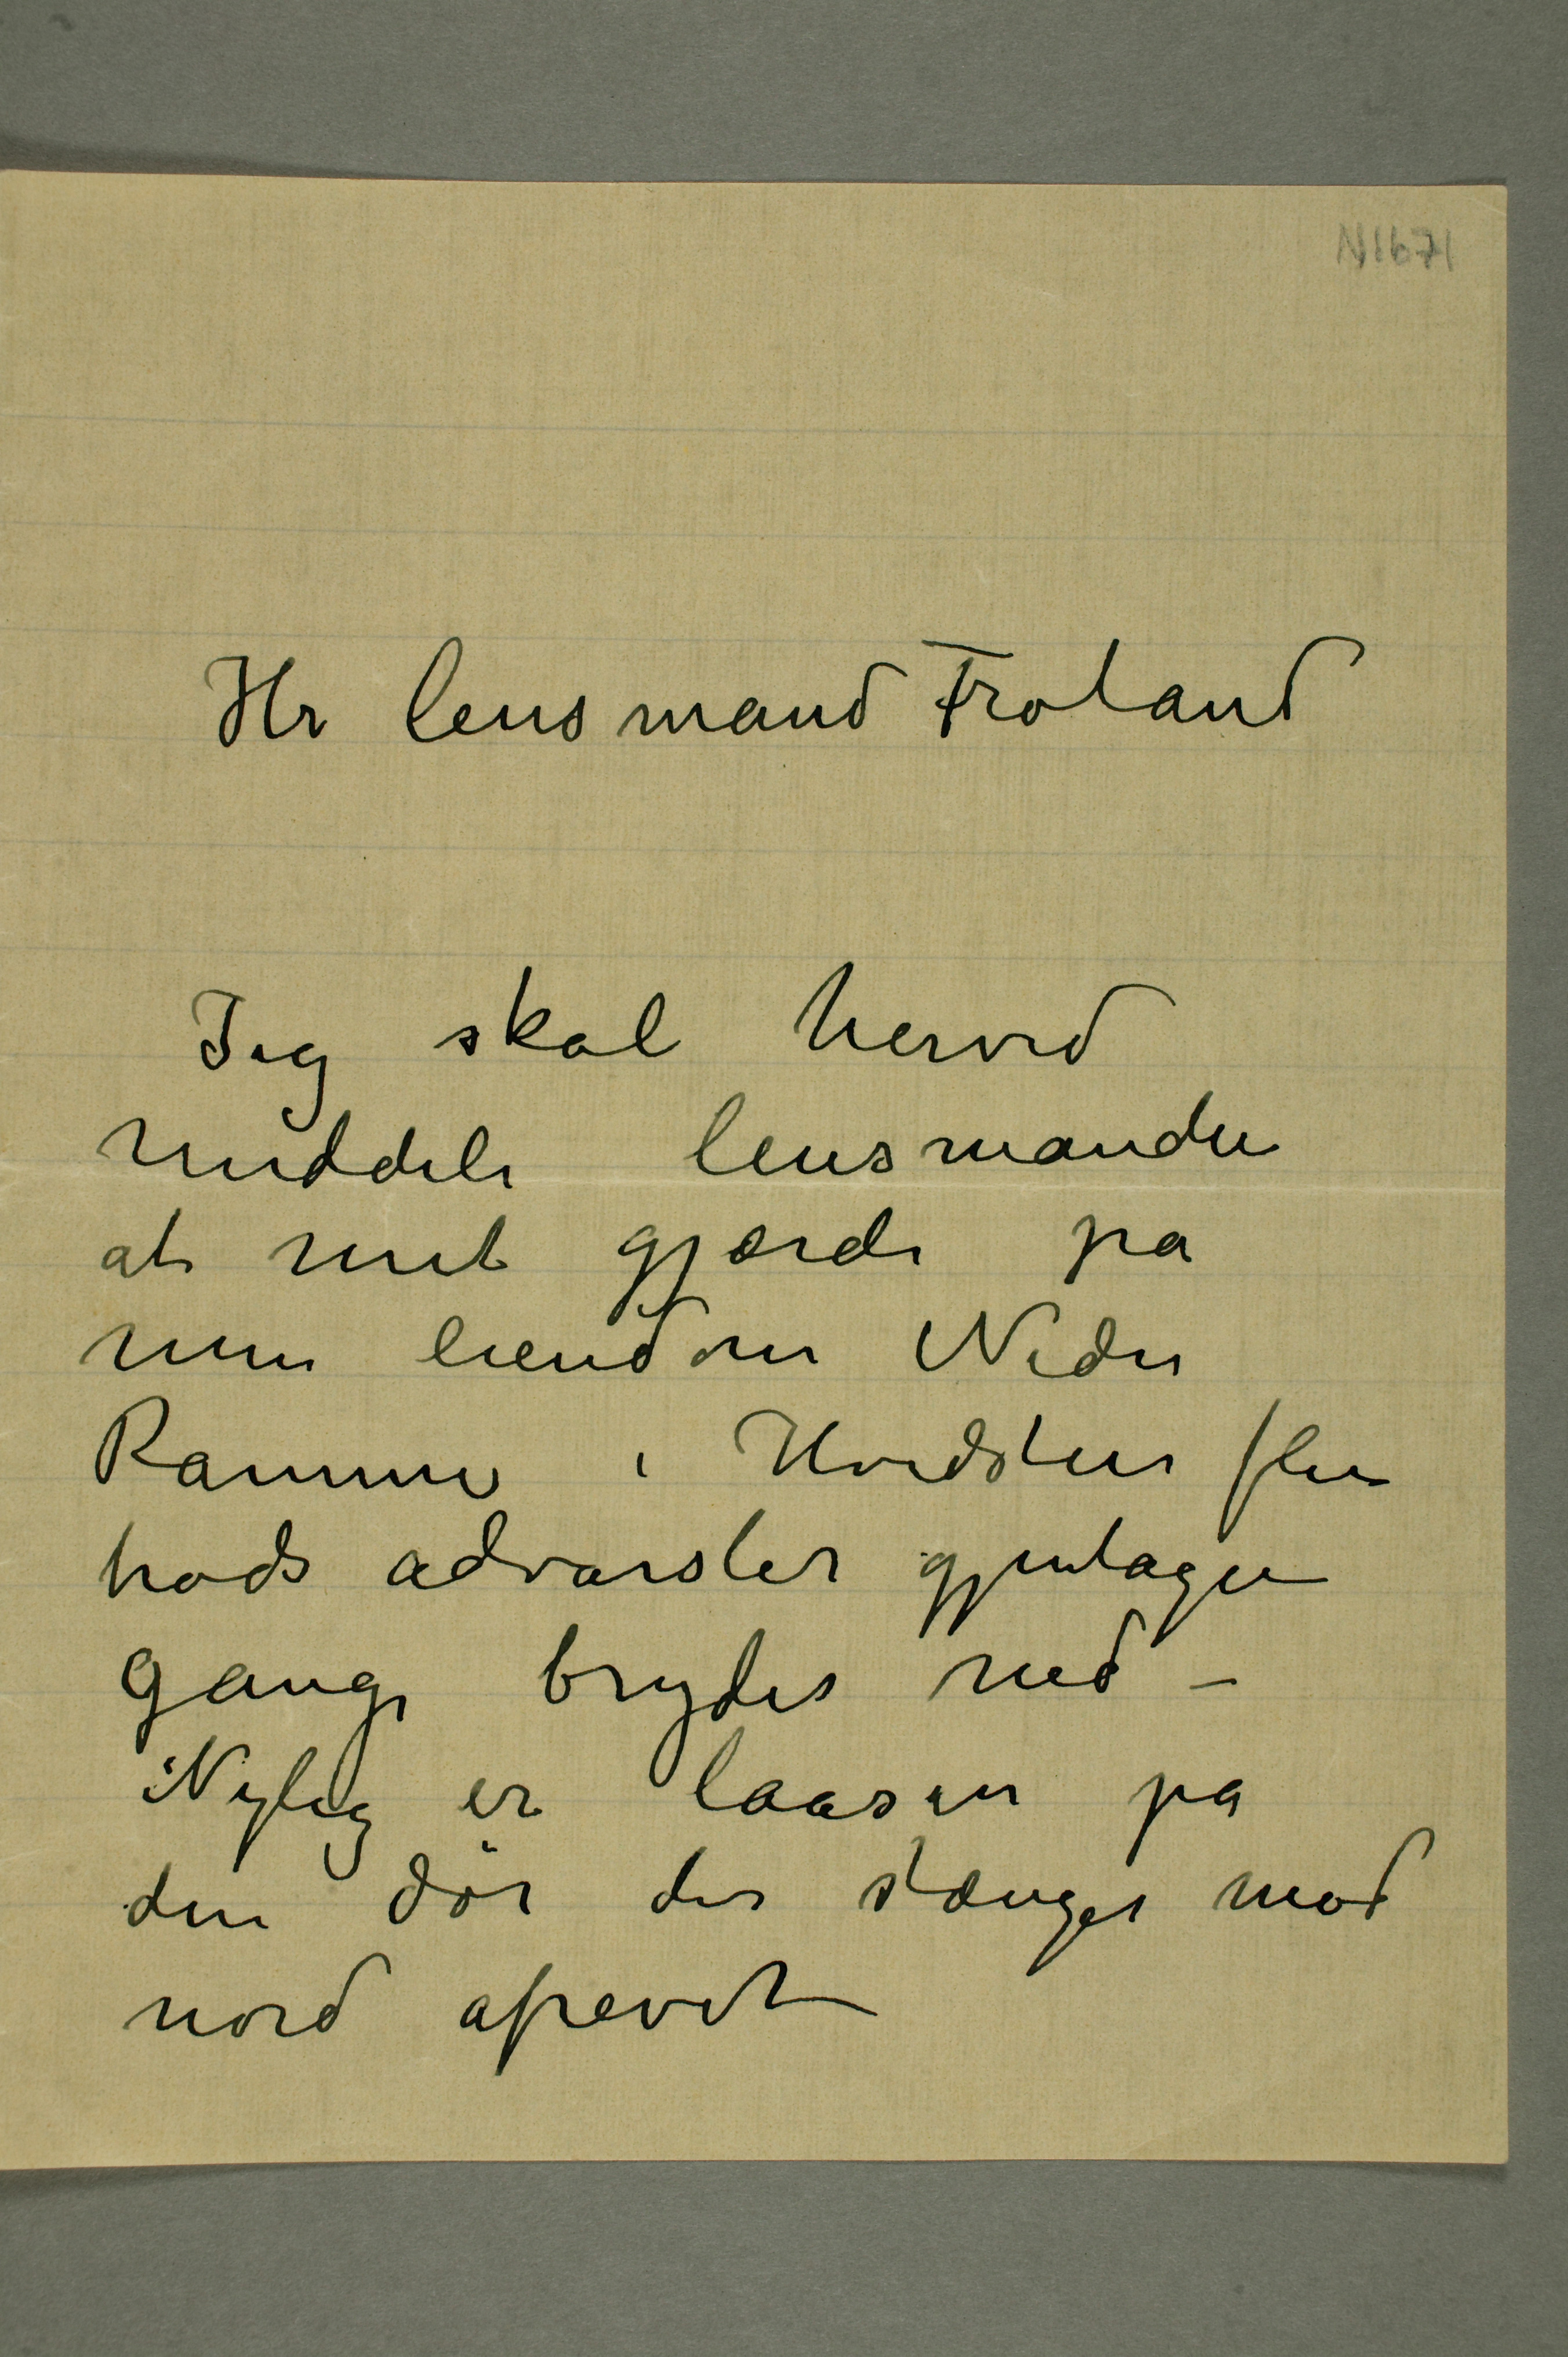 N1671
Hr lensmand Froland
Jeg skal herved
meddele lensmanden
at mit gjærde pa
min eiendom Nedre
Ramme i Hvidsten
trods advarsler gjentagne
gange brydes ned –
Nylig er laasen pa
den dör der stænger mod
nord afrevet